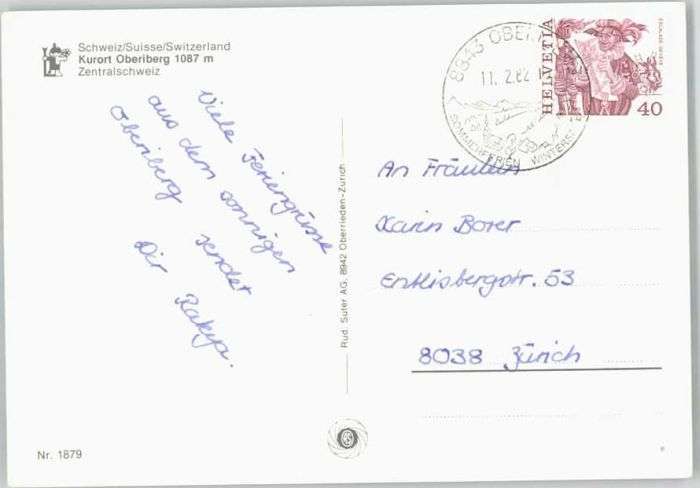 Schweiz/Suisse/Switzerland
Kurort Oberiberg 1087 m
Zentralschweiz
Viele Feriengrüsse
aus dem sonnigen
Oberiberg sendet
Dir
Rud. Suter AG, 8942 Oberrieden-Zürich
8843 OBERI
11. 2.82
SOMMERFERIEN WINTERS
HELVETIA
40
An Fräulein
Karin Borer
Entlisbergstr. 53
8038 Zürich
Nr. 1879